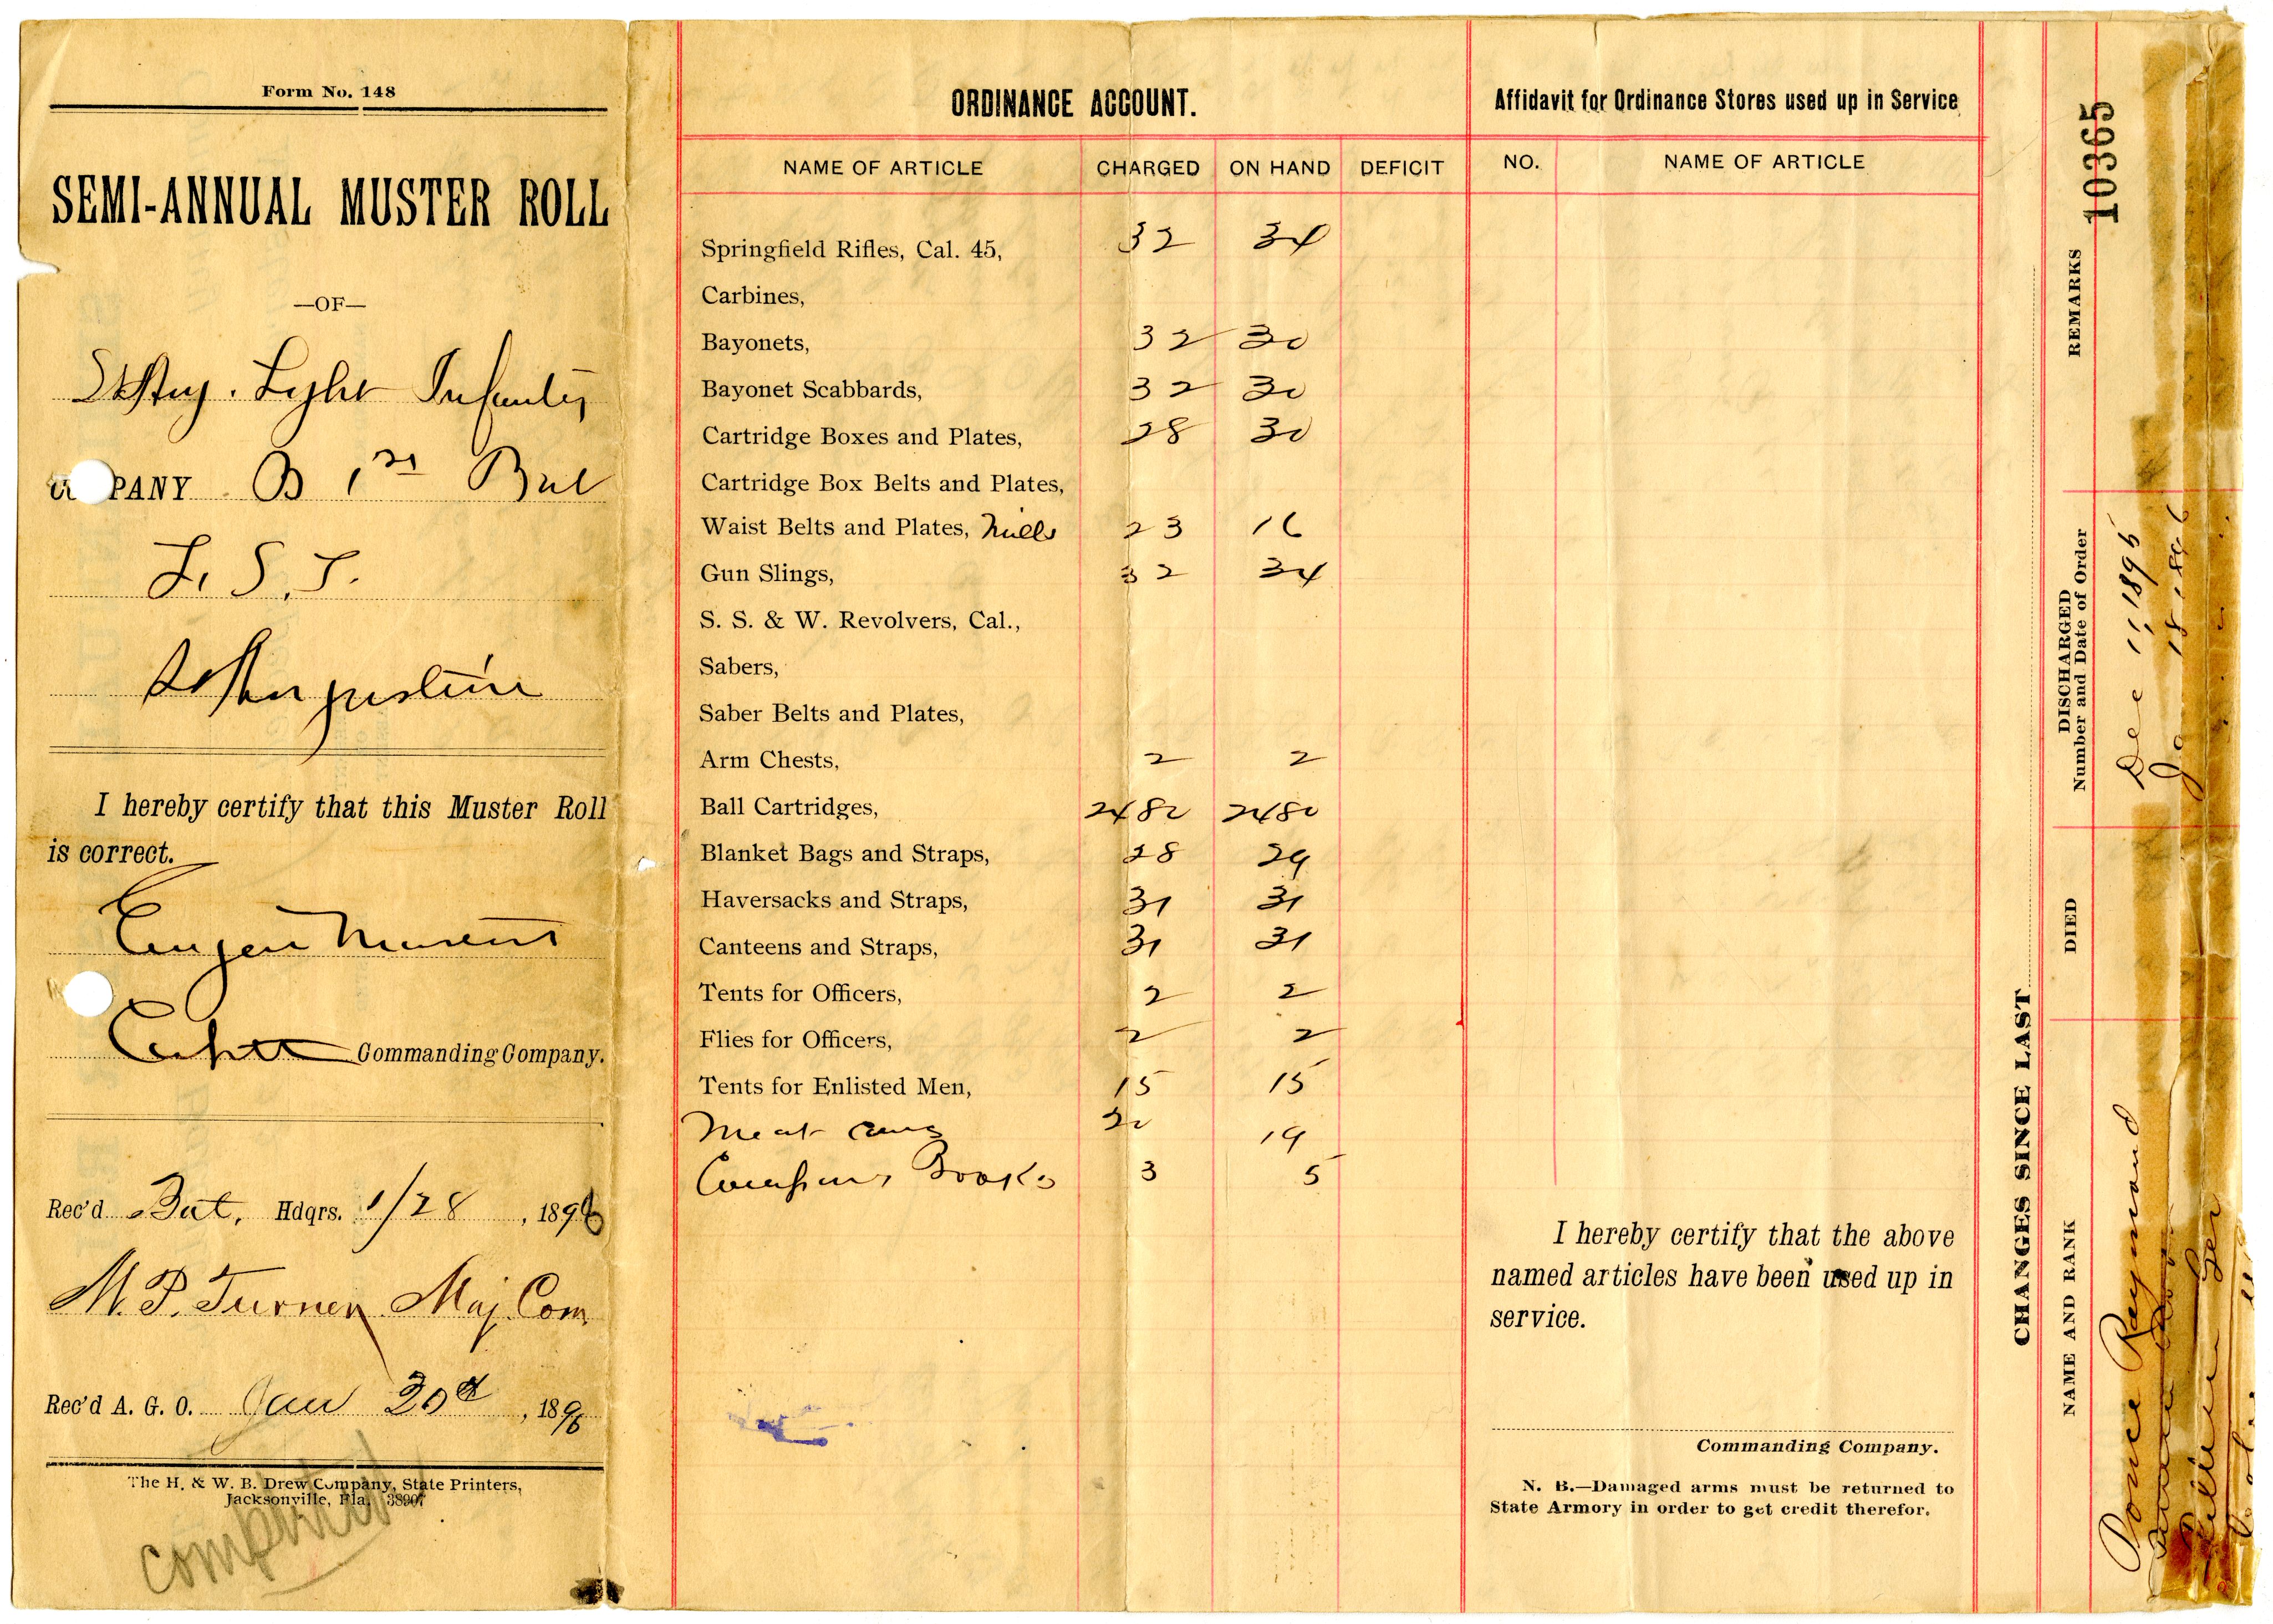 Form No. 148
SEMI-ANNUAL MUSTER ROLL
—OF—
St Aug. Light Infantry
COMPANY B 1st Bat
F. S. T.
St Augustine
I hereby certify that this Muster Roll
is correct.
Capt Commanding Company.
Rec'd Bat. Hdqrs. 1/28, 1896
M. P. Turner Maj. Com.
Rec'd A. G. O. Jan 30th, 1896
The H. & W. B. Drew Company, State Printers,
Jacksonville, Fla. 38907
completed
ORDINANCE ACCOUNT.
NAME OF ARTICLE CHARGED ON HAND DEFICIT
Springfield Rifles, Cal. 45, 32 34
Carbines,
Bayonets, 32 30
Bayonet Scabbards, 32 30
Cartridge Boxes and Plates, 28 30
Cartridge Box Belts and Plates,
Waist Belts and Plates, Mills 23 16
Gun Slings, 32 34
S. S. & W. Revolvers, Cal.,
Sabers,
Saber Belts and Plates,
Arm Chests, 2 2
Ball Cartridges, 2480 2480
Blanket Bags and Straps, 28 29
Haversacks and Straps, 31 31
Canteens and Straps, 31 31
Tents for Officers, 2 2
Flies for Officers, 2 2
Tents for Enlisted Men, 15 15
Meat cans 20 19
Company Books 3 5
Affidavit for Ordinance Stores used up in Service
NO. NAME OF ARTICLE
I hereby certify that the above
named articles have been used up in
service.
Commanding Company.
N. B.—Damaged arms must be returned to
State Armory in order to get credit therefor.
CHANGES SINCE LAST
NAME AND RANK DIED DISCHARGED Number and Date of Order REMARKS
10365
Ponce Raymond Dec 11, 1895